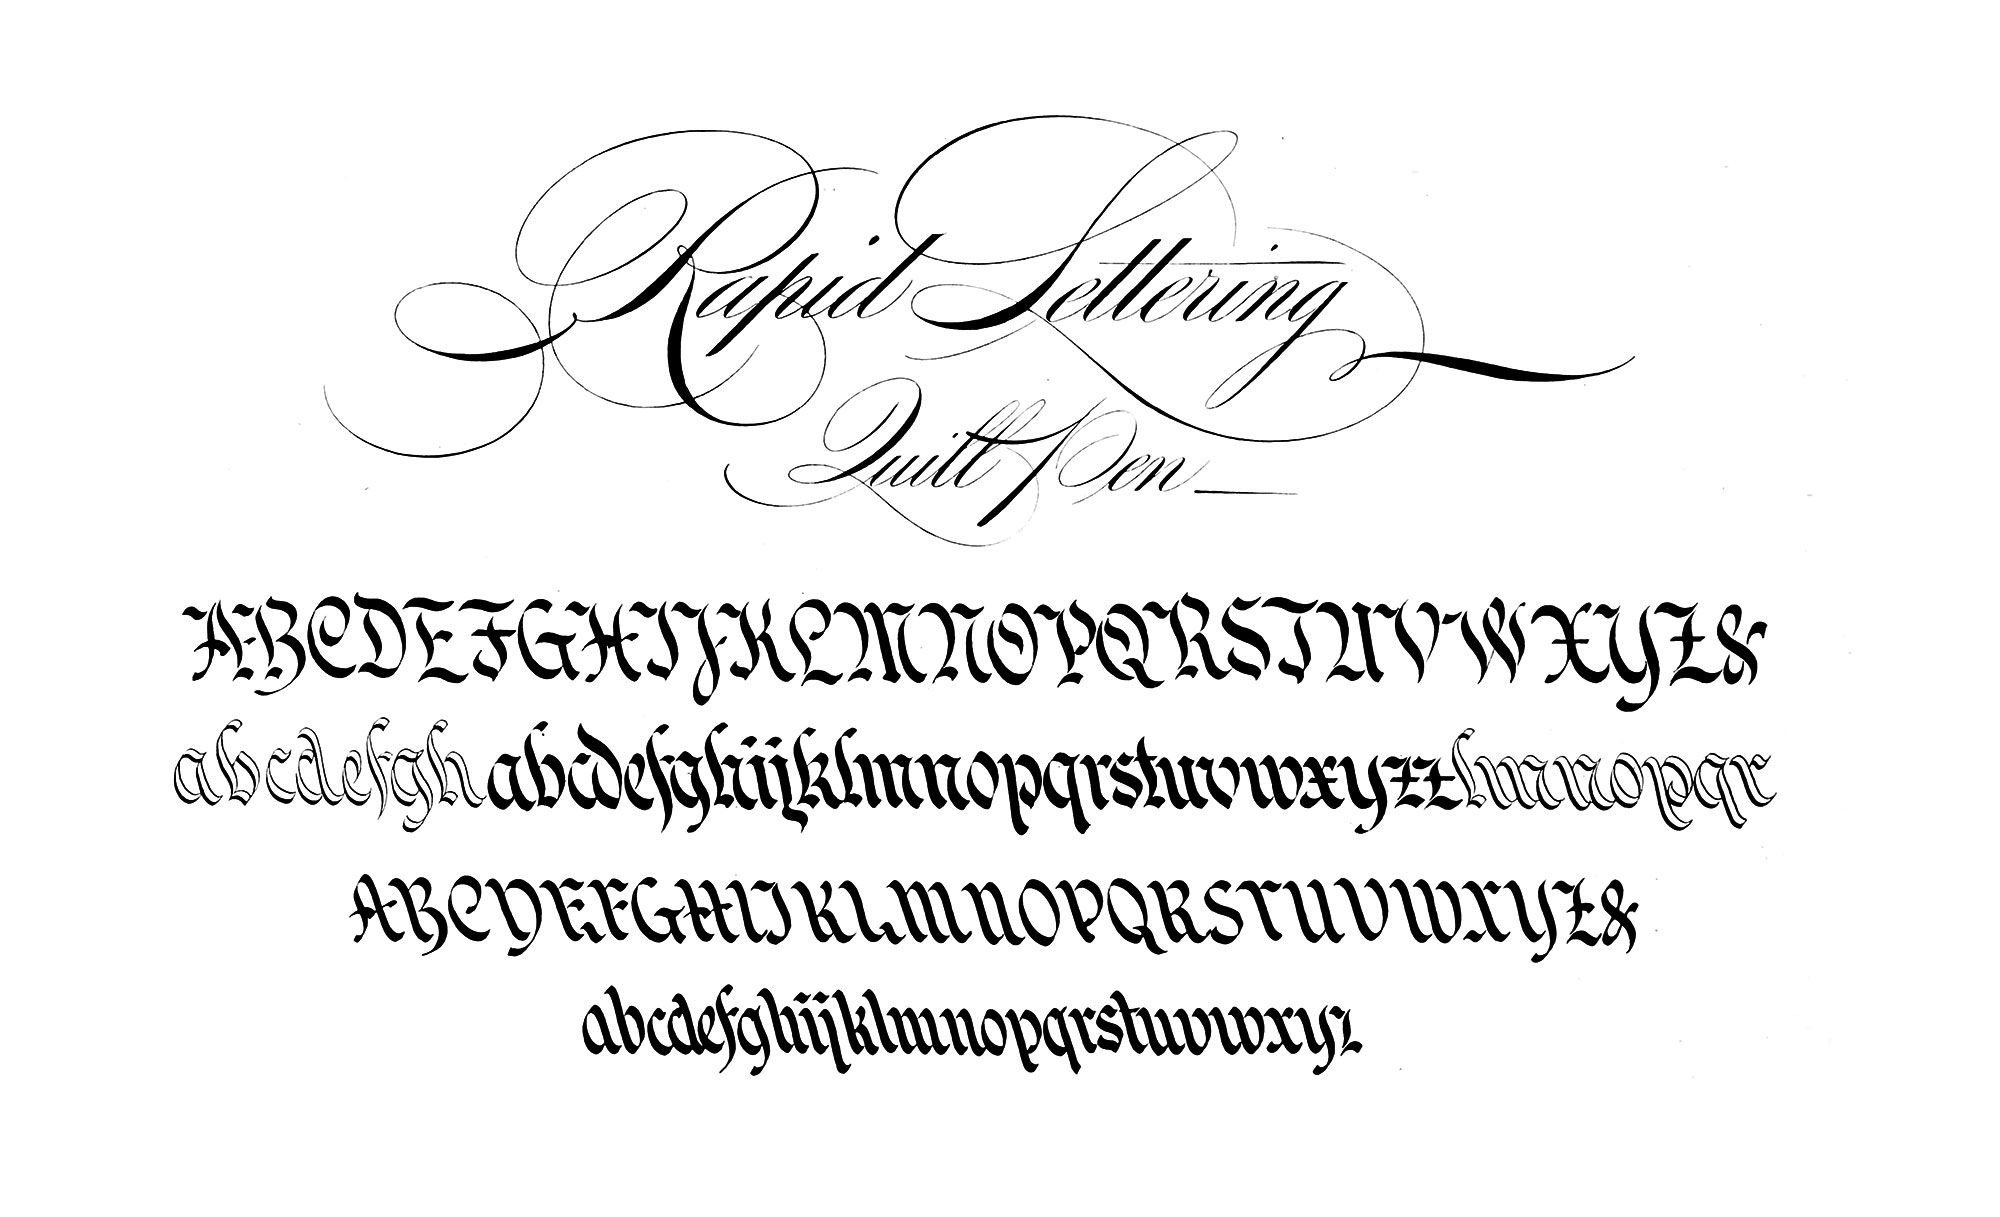 Rapid Lettering
Quill Pen
ABCDEFGHIJKLMNOPQRSTUVWXYZ&
abcdefgh abcdefghijklmnopqrstuvwxyzz lmnopqr
ABCDEFGHIJKLMNOPQRSTUVWXYZ&
abcdefghijklmnopqrstuvwxyz